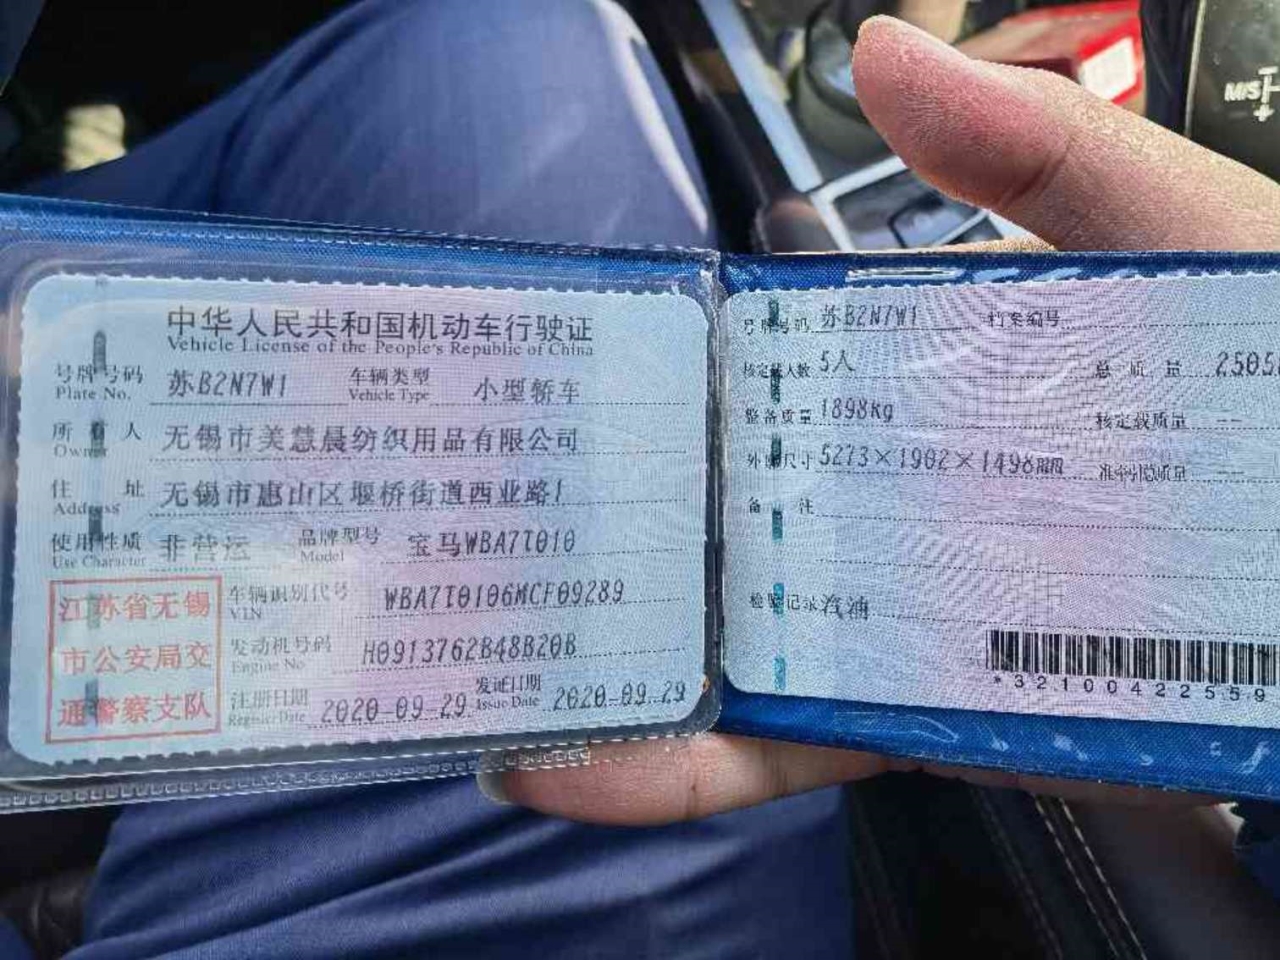 M/S
中华人民共和国机动车行驶证
Vehicle License of the People's Republic of China
号牌号码 苏B2N7W1 车辆类型 小型轿车
Plate No. Vehicle Type
所有人 无锡市美慧晨纺织用品有限公司
Owner
住址 无锡市惠山区堰桥街道西业路1
Address
使用性质 非营运 品牌型号 宝马WBA7T010
Use Character Model
江苏省无锡
市公安局交
通警察支队
车辆识别代号 WBA7T0106MCF09289
VIN
发动机号码 H0913762B48B20B
Engine No
注册日期 2020-09-29 发证日期 2020-09-29
Register Date Issue Date
号牌号码 苏B2N7W1 档案编号
核定载人数 5人 总质量 2505
整备质量 1898kg 核定载质量 --
外廓尺寸 5273×1902×1498mm 准牵引总质量 --
备注
检验记录 汽油
*3210042255 9